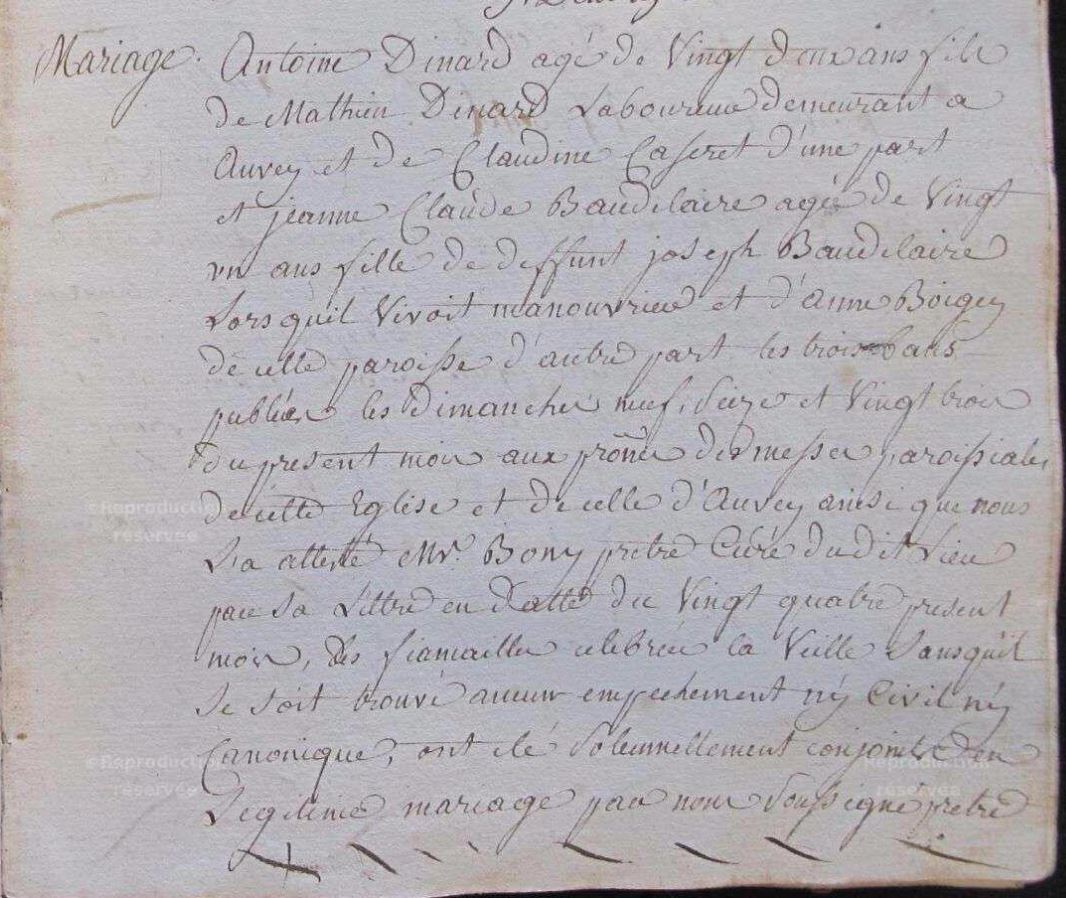 Mariage. Antoine Dinard agé de Vingt deux ans fils
de Mathieu Dinard Laboureur demeurant a
Auvey et de Claudine Caseret d'une part
et jeanne Claude Baudelaire agée de Vingt
un ans fille de deffunt joseph Baudelaire
Lorsquil Vivoit manouvrier et d'anne Boigey
de cette paroisse d'autre part les trois bans
publiées les Dimanches neuf, Seize et Vingt trois
du present mois aux prônes des messes paroissiales
de cette Eglise et de celle d'Auvey ainsi que nous
L'a attesté Mr. Bony prêtre Curé dudit Lieu
par Sa Lettre en Datte du Vingt quatre present
mois, les fiancailles celebrées la Veille Sansquil
Se soit trouvé aucun empechement nÿ Civil nÿ
Canonique, ont été Solemnellement conjoints en
Legitime mariage par nous Soussigné pretre
Reproduction réservée
Reproduction réservée
Reproduction réservée
Reproduction réservée